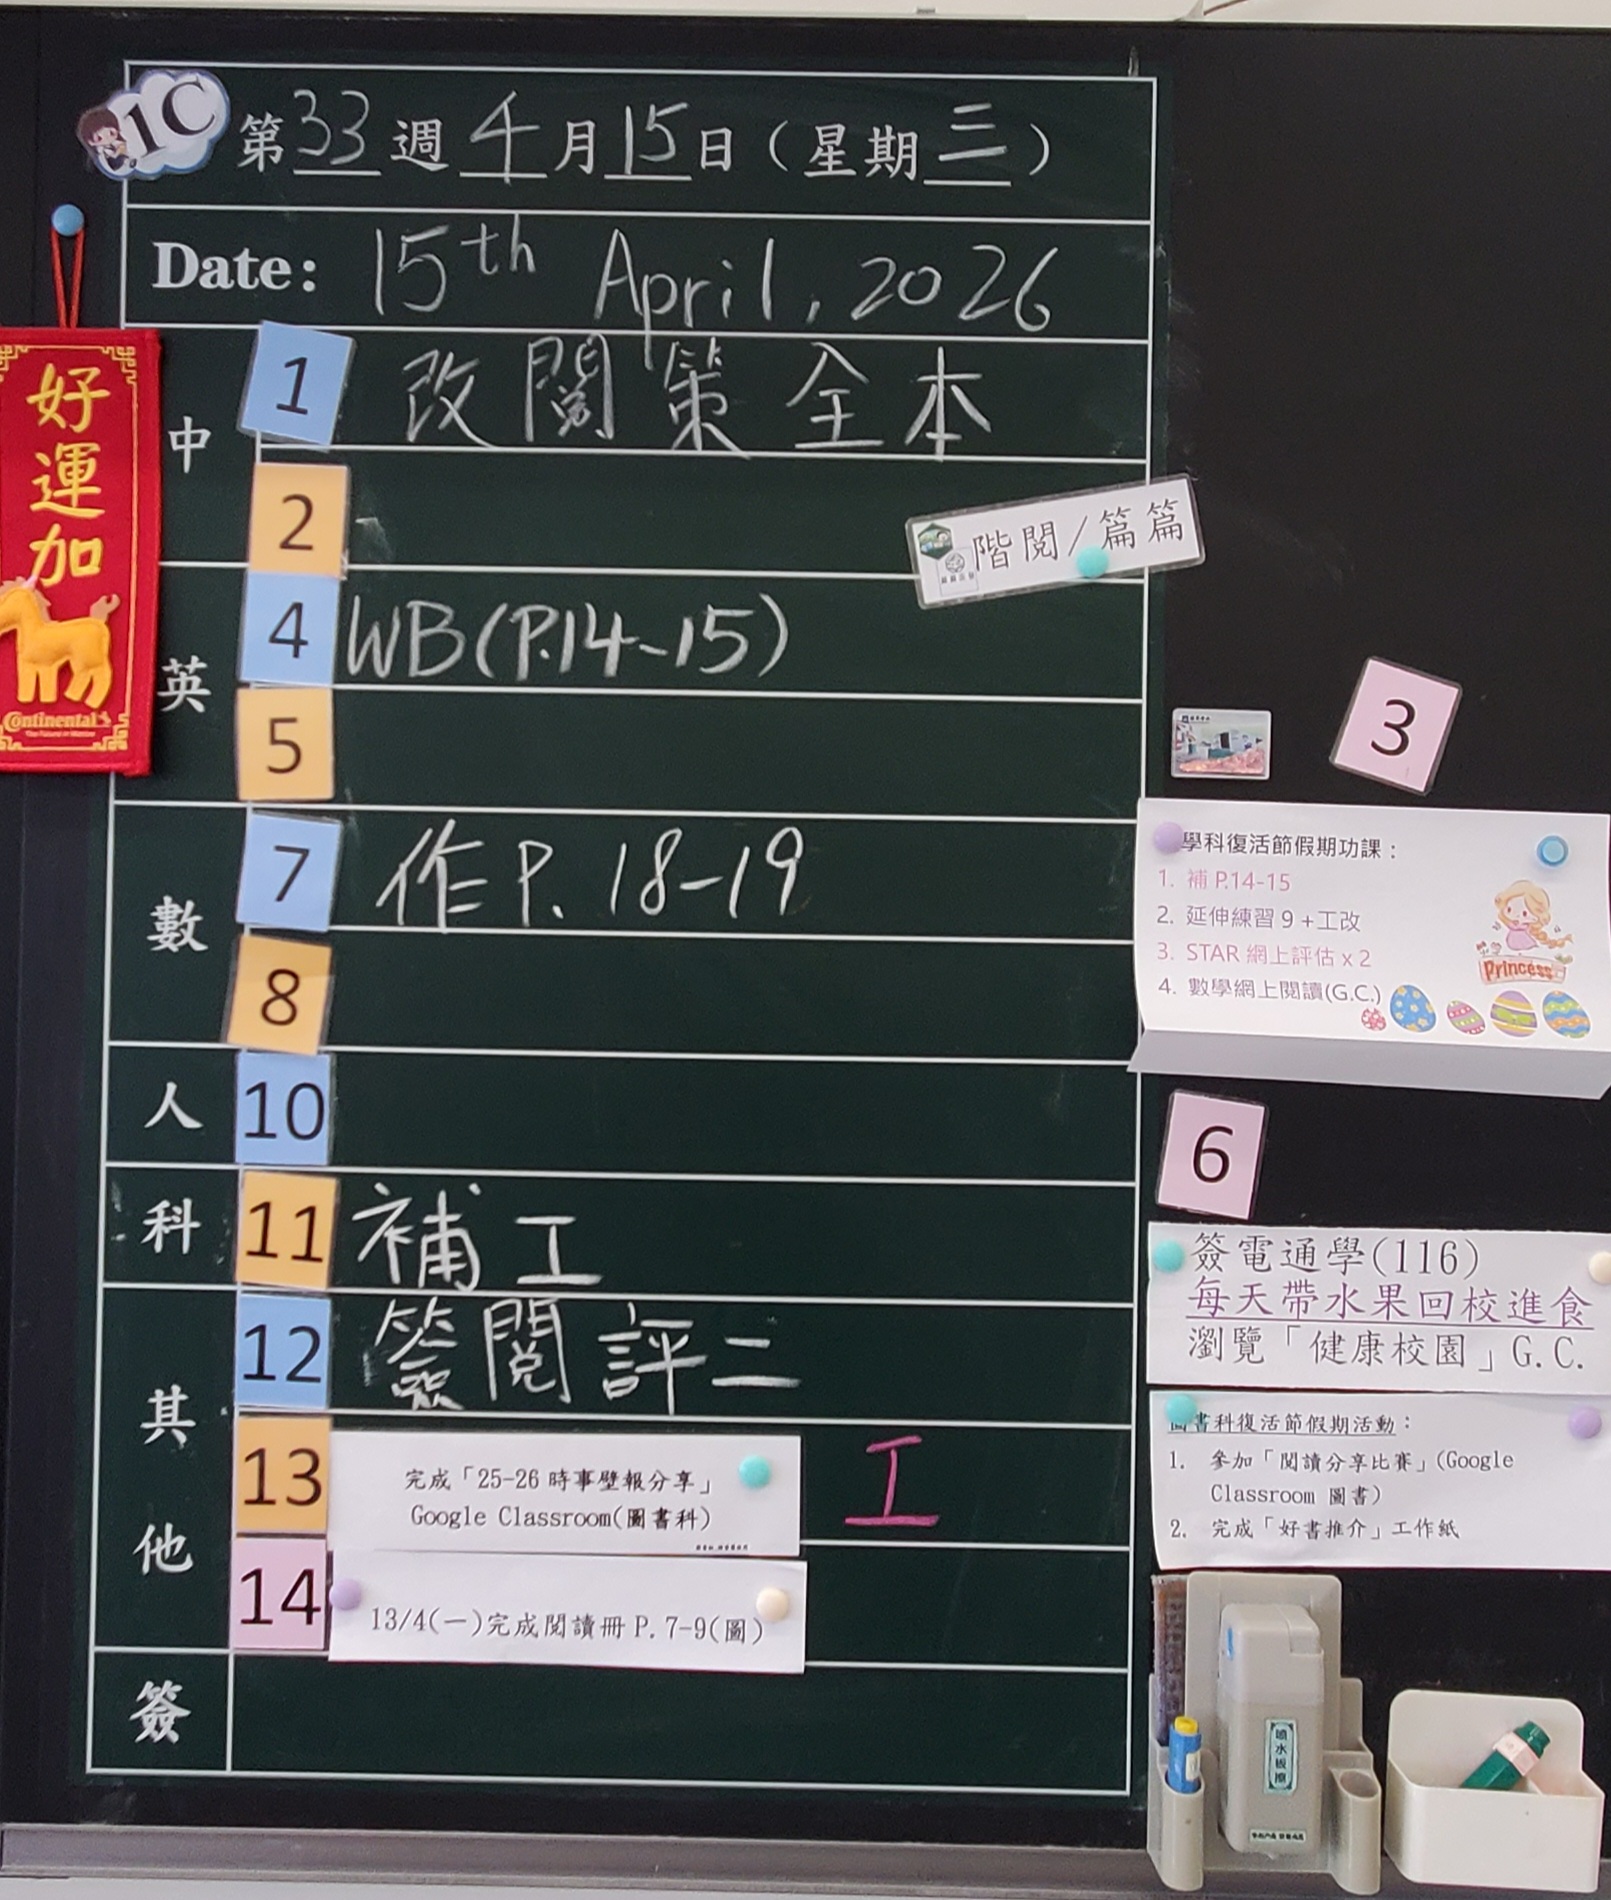 1C
第33週4月15日（星期三）
Date: 15th April, 2026
好運加
Continental
中
1 改閱策全本
2
階閱/篇篇
英
4 WB(P.14-15)
5
3
數
7 作P. 18-19
8
學科復活節假期功課：
1. 補 P.14-15
2. 延伸練習 9 +工改
3. STAR 網上評估 x 2
4. 數學網上閱讀(G.C.)
Princess
人
10
6
科
11 補工
簽電通學(116)
每天帶水果回校進食
瀏覽「健康校園」G.C.
其他
12 簽閱評二
13 完成「25-26 時事壁報分享」
Google Classroom(圖書科)
工
14 13/4(一)完成閱讀冊 P. 7-9(圖)
圖書科復活節假期活動：
1. 參加「閱讀分享比賽」(Google
Classroom 圖書)
2. 完成「好書推介」工作紙
簽
噴水板擦